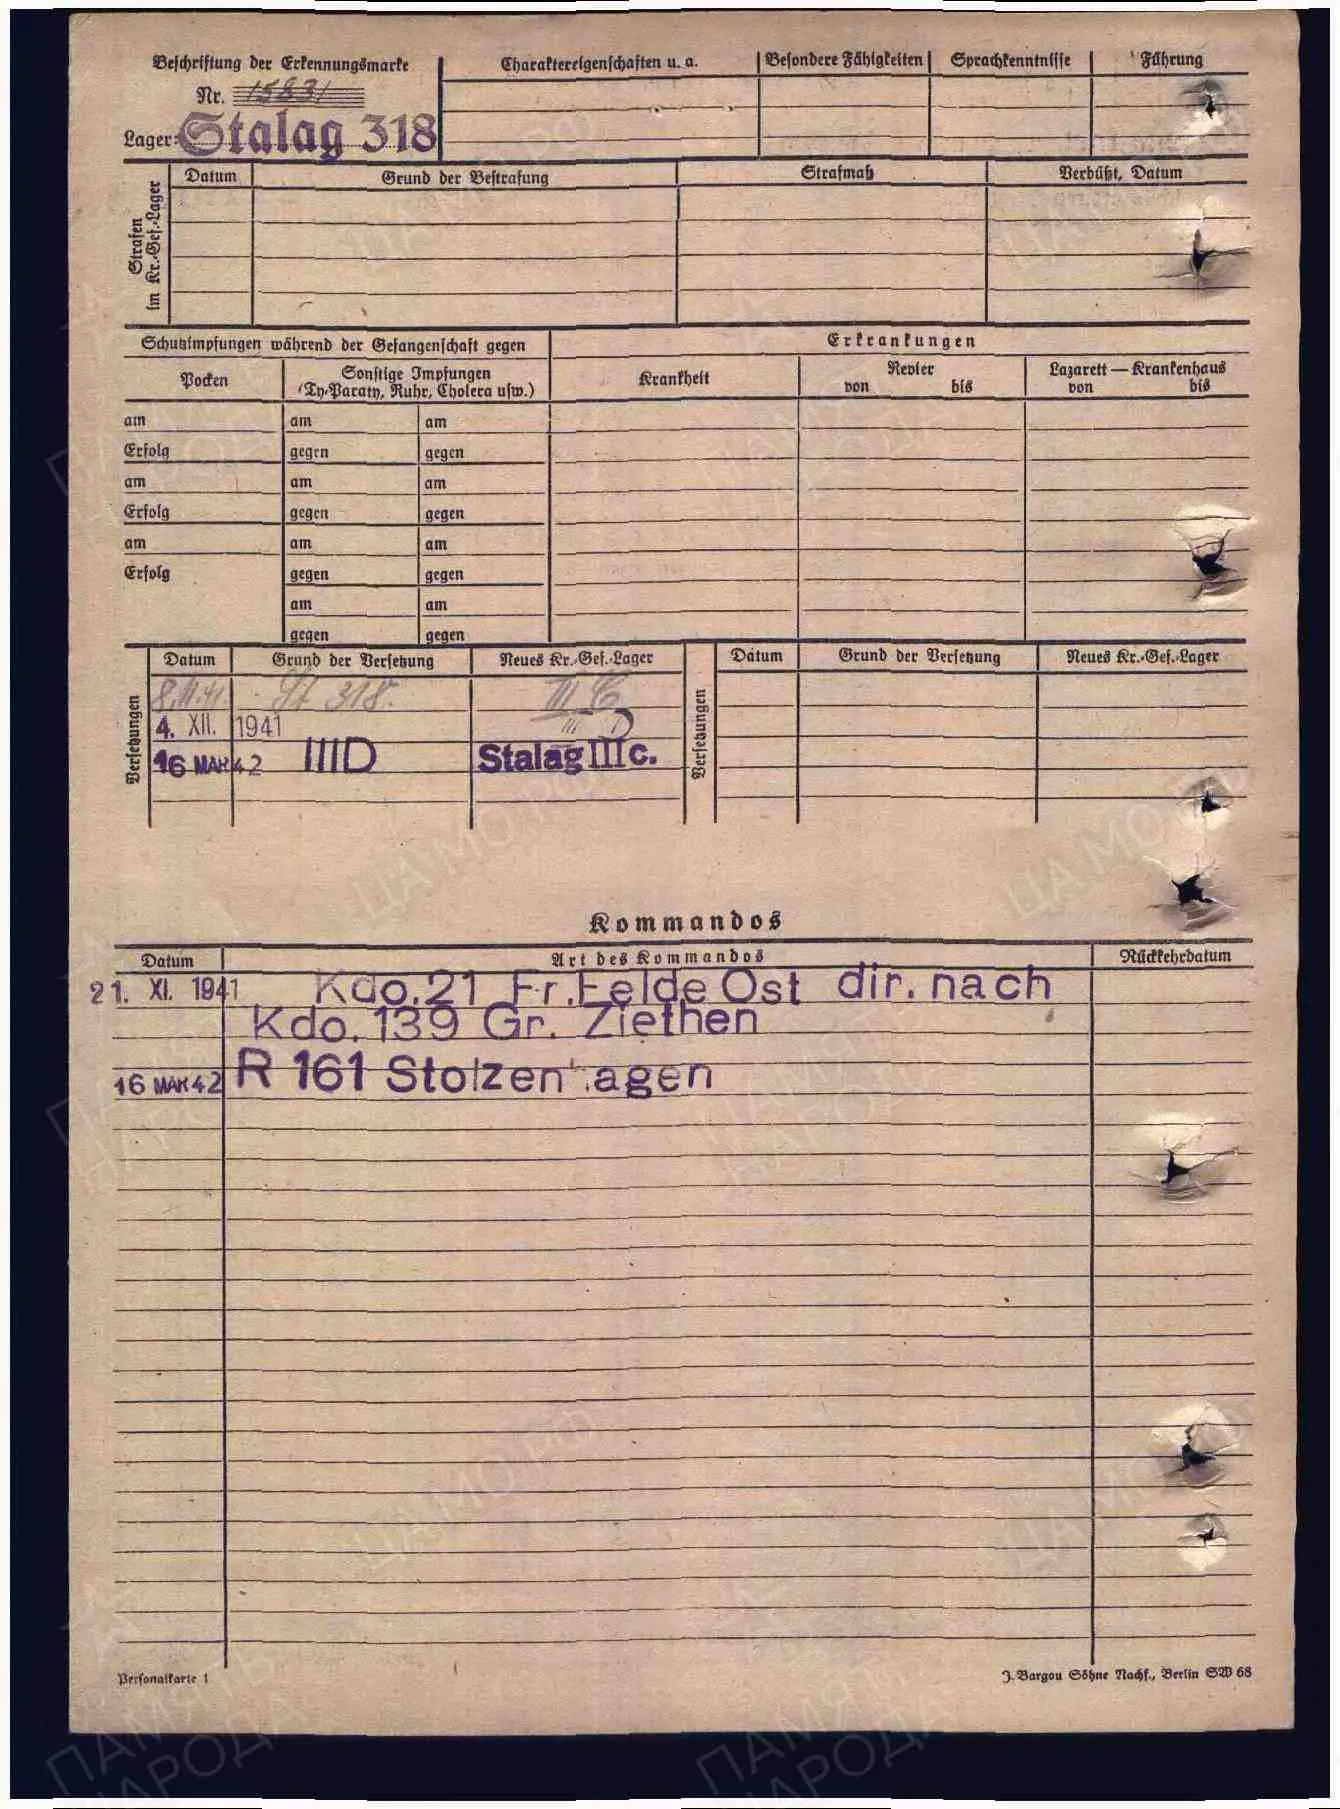 Beschriftung der Erkennungsmarke
Nr. 15831
Lager: Stalag 318
Charaktereigenschaften u. a.
Besondere Fähigkeiten
Sprachkenntnisse
Führung
Strafen im Kr.-Gef.-Lager
Datum
Grund der Bestrafung
Strafmaß
Verbüßt, Datum
Schutzimpfungen während der Gefangenschaft gegen
Erkrankungen
Pocken
Sonstige Impfungen
(Ty-Paraty, Ruhr, Cholera usw.)
Krankheit
Revier
von bis
Lazarett — Krankenhaus
von bis
am am am
Erfolg gegen gegen
am am am
Erfolg gegen gegen
am am am
Erfolg gegen gegen
am am
gegen gegen
Versetzungen
Datum Grund der Versetzung Neues Kr.-Gef.-Lager
8.11.41 St 318. III C
4. XII. 1941 III D
16 MAR 42 IIID Stalag IIIc.
Versetzungen
Datum Grund der Versetzung Neues Kr.-Gef.-Lager
Kommandos
Datum Art des Kommandos Rückkehrdatum
21. XI. 1941 Kdo.21 Fr.Felde Ost dir. nach
Kdo. 139 Gr. Ziethen
16 MAR 42 R 161 Stolzenhagen
Personalkarte 1
J. Bargou Söhne Nachf., Berlin SW 68
ПАМЯТЬ
НАРОДА
ЦАМО РФ